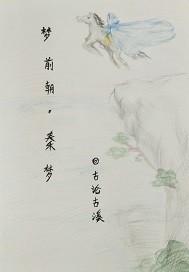 梦前朝，秦梦
@古论古溪